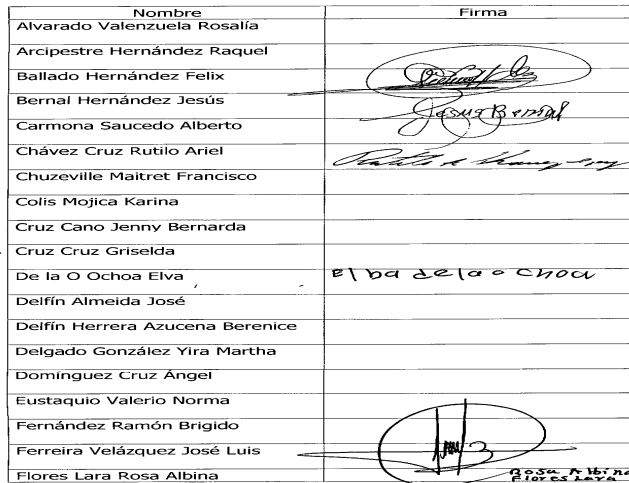 Nombre Firma
Alvarado Valenzuela Rosalía
Arcipestre Hernández Raquel
Ballado Hernández Felix
Bernal Hernández Jesús Jesus Bernal
Carmona Saucedo Alberto
Chávez Cruz Rutilo Ariel
Chuzeville Maitret Francisco
Colis Mojica Karina
Cruz Cano Jenny Bernarda
Cruz Cruz Griselda
De la O Ochoa Elva Elba de la o choa
Delfín Almeida José
Delfín Herrera Azucena Berenice
Delgado González Yira Martha
Domínguez Cruz Ángel
Eustaquio Valerio Norma
Fernández Ramón Brigido
Ferreira Velázquez José Luis
Flores Lara Rosa Albina Rosa Albina
Flores Lara